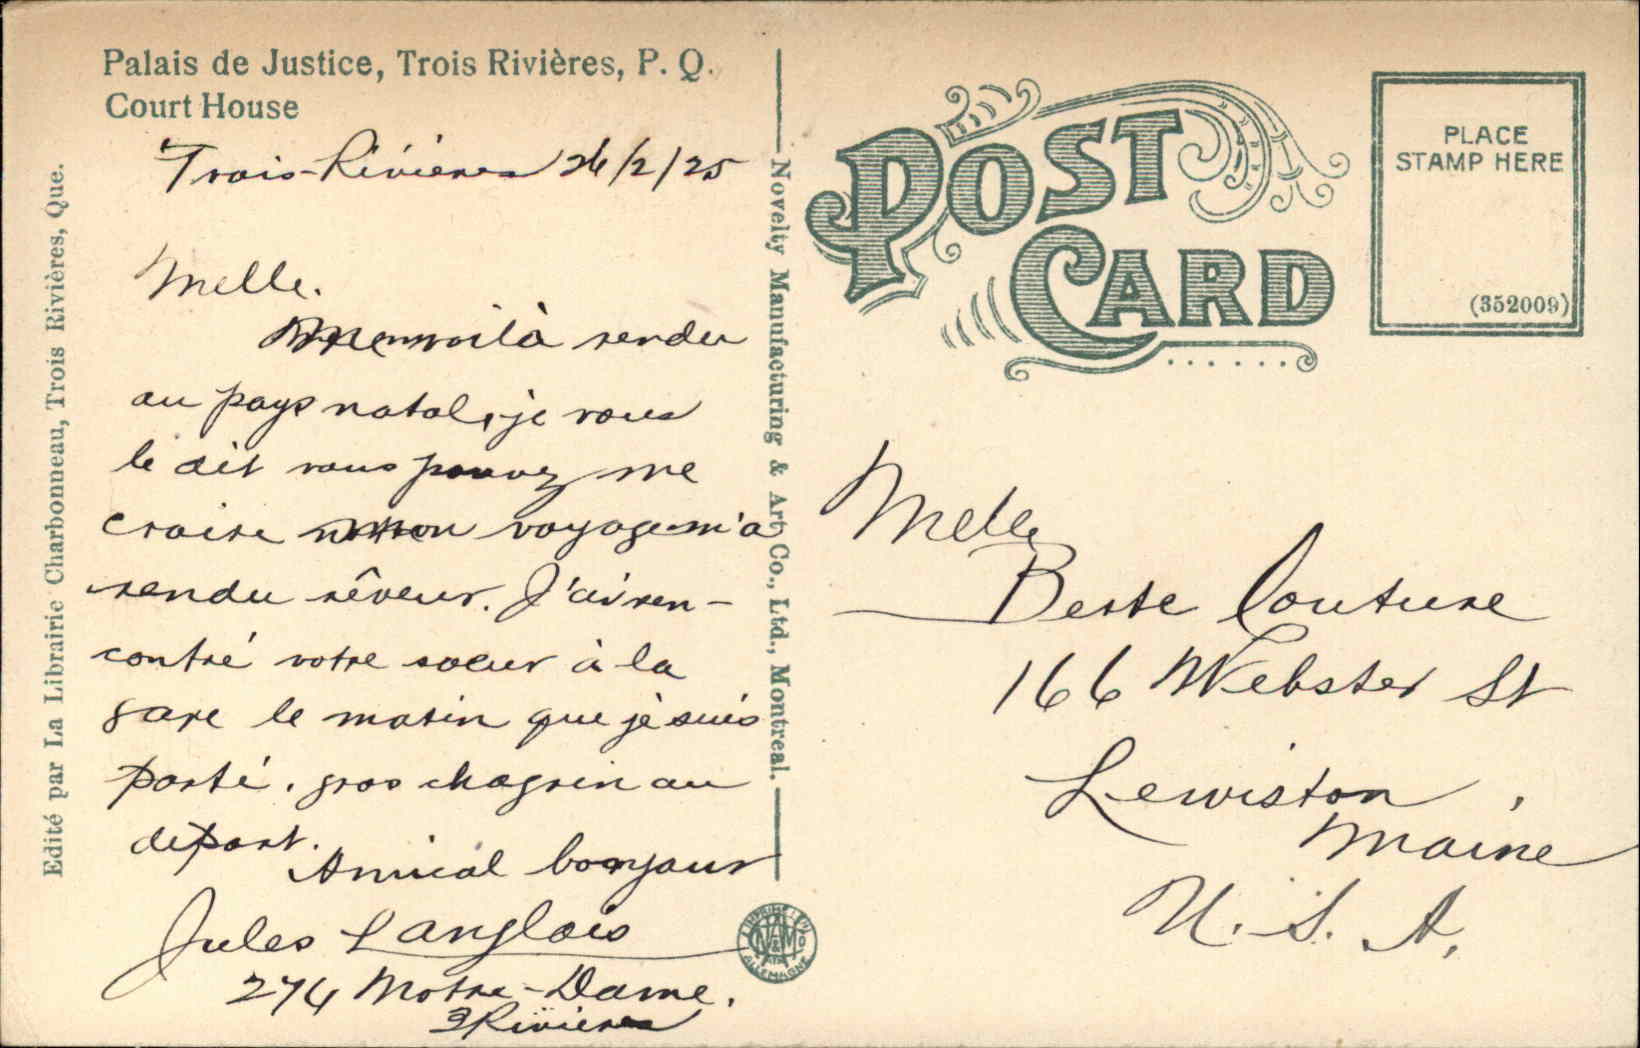 Palais de Justice, Trois Rivières, P. Q.
Court House
Trois-Rivières 26/2/25
Melle.
me voilà rendu
au pays natal, je vous
le dit vous pouvez me
croire mon voyage m'a
rendu rêveur. J'ai ren-
contré votre soeur à la
gare le matin que je suis
parté. gros chagrin au
depart.
Amical bonjour
Jules Langlois
274 Notre-Dame.
3 Rivieres
Edité par La Librairie Charbonneau, Trois Rivières, Que.
Novelty Manufacturing & Art Co., Ltd., Montreal.
POST
CARD
PLACE
STAMP HERE
(352009)
Melle
Berte Couture
166 Webster St
Lewiston,
Maine
U. S. A.
ALLEMAGNE